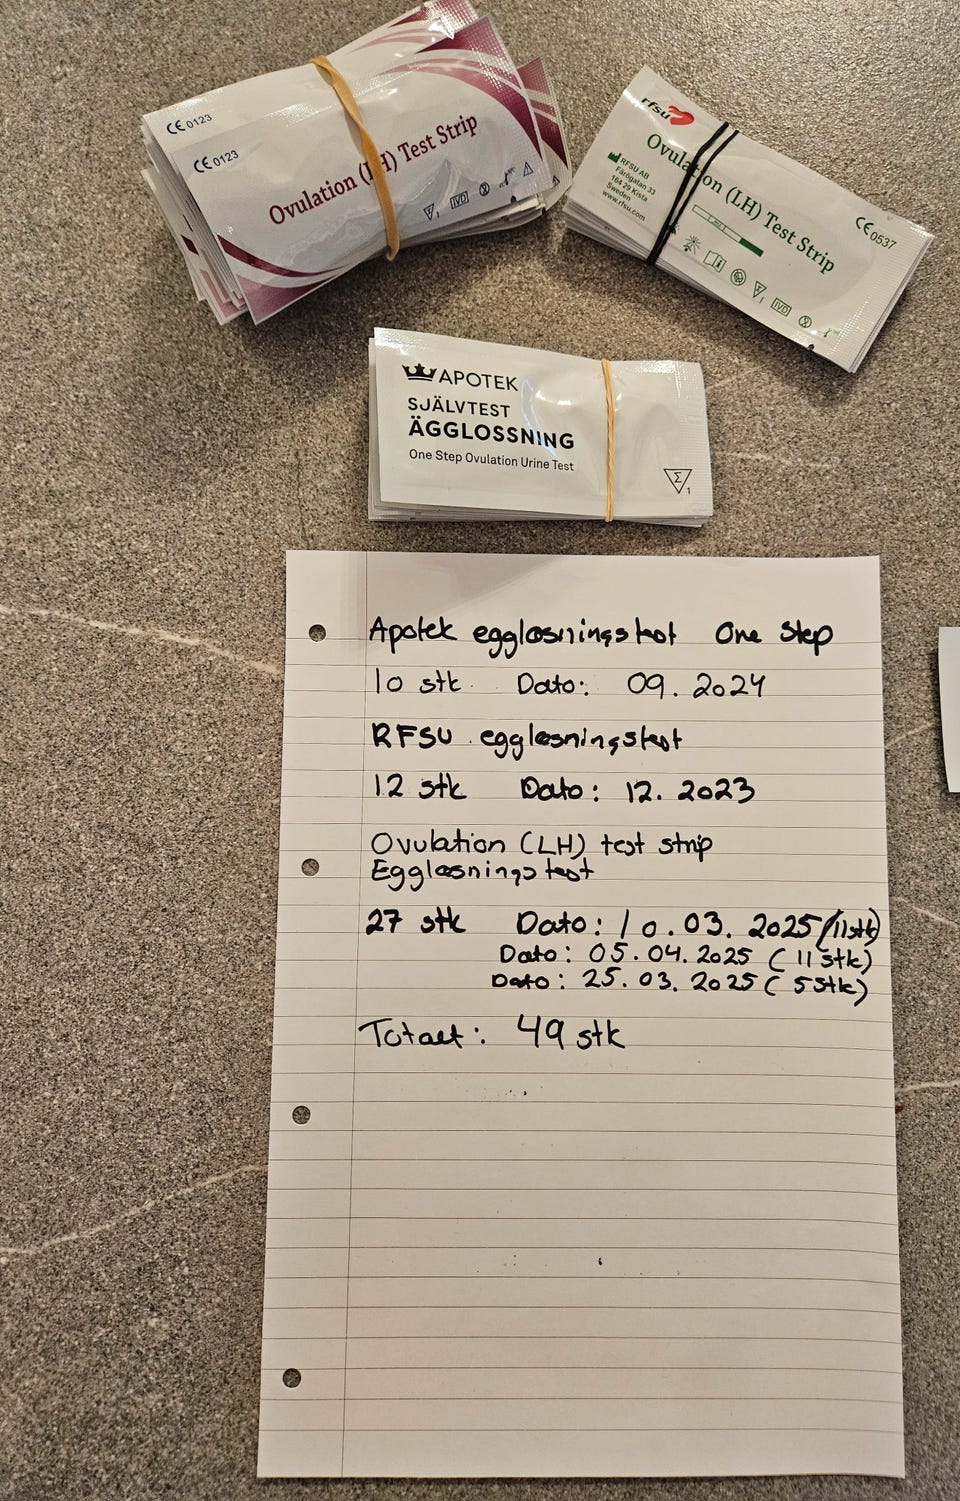 CE 0123
CE 0123
Ovulation (LH) Test Strip
IVD
rfsu
Ovulation (LH) Test Strip
RFSU AB
Fårögatan 33
164 29 Kista
Sweden
www.rfsu.com
CE 0537
IVD
APOTEK
SJÄLVTEST
ÄGGLOSSNING
One Step Ovulation Urine Test
Σ 1
Apotek eggløsningstest One Step
10 stk Dato: 09. 2024
RFSU eggløsningstest
12 stk Dato: 12. 2023
Ovulation (LH) test strip
Eggløsningstest
27 stk Dato: 10.03. 2025 (11stk)
Dato: 05.04.2025 (11 stk)
Dato: 25.03.2025 (5stk)
Totalt: 49 stk